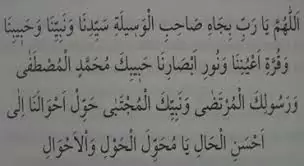 اَللّٰهُمَّ يَا رَبِّ بِجَاهِ صَاحِبِ الْوَسِيلَةِ سَيِّدِنَا وَنَبِيِّنَا وَحَبِيبِنَا
وَقُرَّةِ اَعْيُنِنَا وَنُورِ اَبْصَارِنَا حَبِيبِكَ مُحَمَّدٍ الْمُصْطَفٰى
وَرَسُولِكَ الْمُرْتَضٰى وَنَبِيِّكَ الْمُجْتَبٰى حَوِّلْ اَحْوَالَنَا اِلٰى
اَحْسَنِ الْحَالِ يَا مُحَوِّلَ الْحَوْلِ وَالْاَحْوَالِ